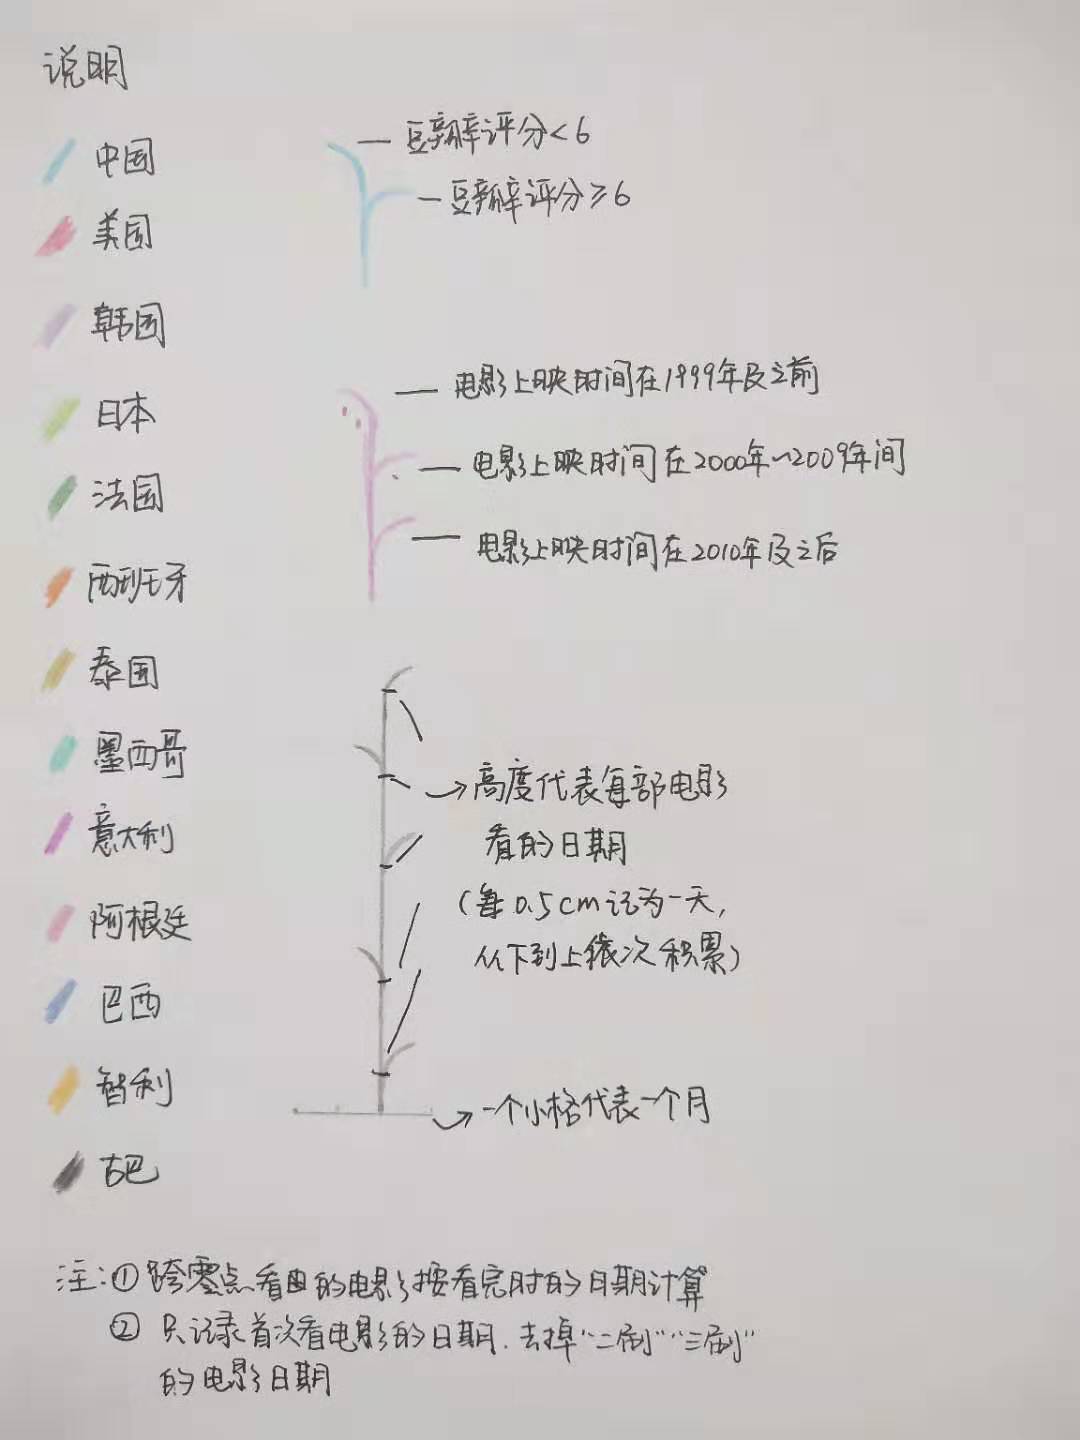 说明
中国
美国
韩国
日本
法国
西班牙
泰国
墨西哥
意大利
阿根廷
巴西
智利
古巴
豆瓣评分<6
豆瓣评分≥6
电影上映时间在1999年及之前
电影上映时间在2000年~2009年间
电影上映时间在2010年及之后
高度代表每部电影
看的日期
(每0.5cm记为一天,
从下到上依次积累)
一个小格代表一个月
注:①跨零点看的电影按看完时的日期计算
②只记录首次看电影的日期.去掉“二刷”“三刷”
的电影日期